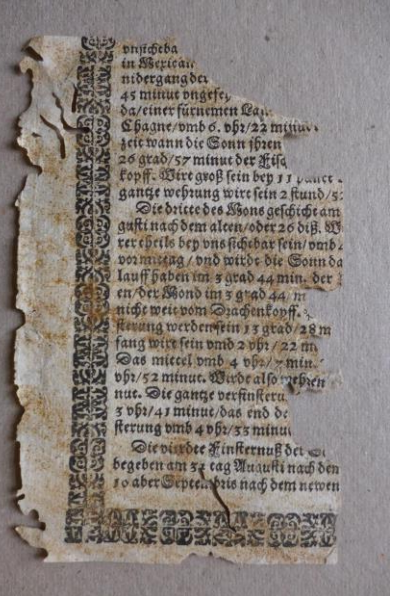 vnsichtba
in Mexican
nidergang der
45 minut vngefe
da/einer fürnemen
Chagne/vmb 6. vhr/22 minut
zeit wann die Sonn jhren
26 grad/57 minut der Fisc
kopff. Wirt groß sein bey 11 punct
gantze wehrung wirt sein 2 stund/5
Die dritte des Mons geschicht am
gusti nach dem alten/oder 26 diß.
rer theils bey vns sichtbar sein/vmb
vormittag/vnd wirdt die Sonn da
lauff haben im 3 grad 44 min. der
en/der Mond im 3 grad 44 m
nicht weit vom Drachenkopff.
sterung werden sein 13 grad/28 m
fang wirt sein vmb 2 vhr/22 m
Das mittel vmb 4 vhr/7 min.
vhr/52 minut. Wirde also wehren
nut. Die gantze verfinsteru
3 vhr/41 minut/das end de
sterung vmb 4 vhr/33 minu
Die vierdte Finsternuß der
begeben am 31 tag Augusti nach den
10 aber Septembris nach dem newen